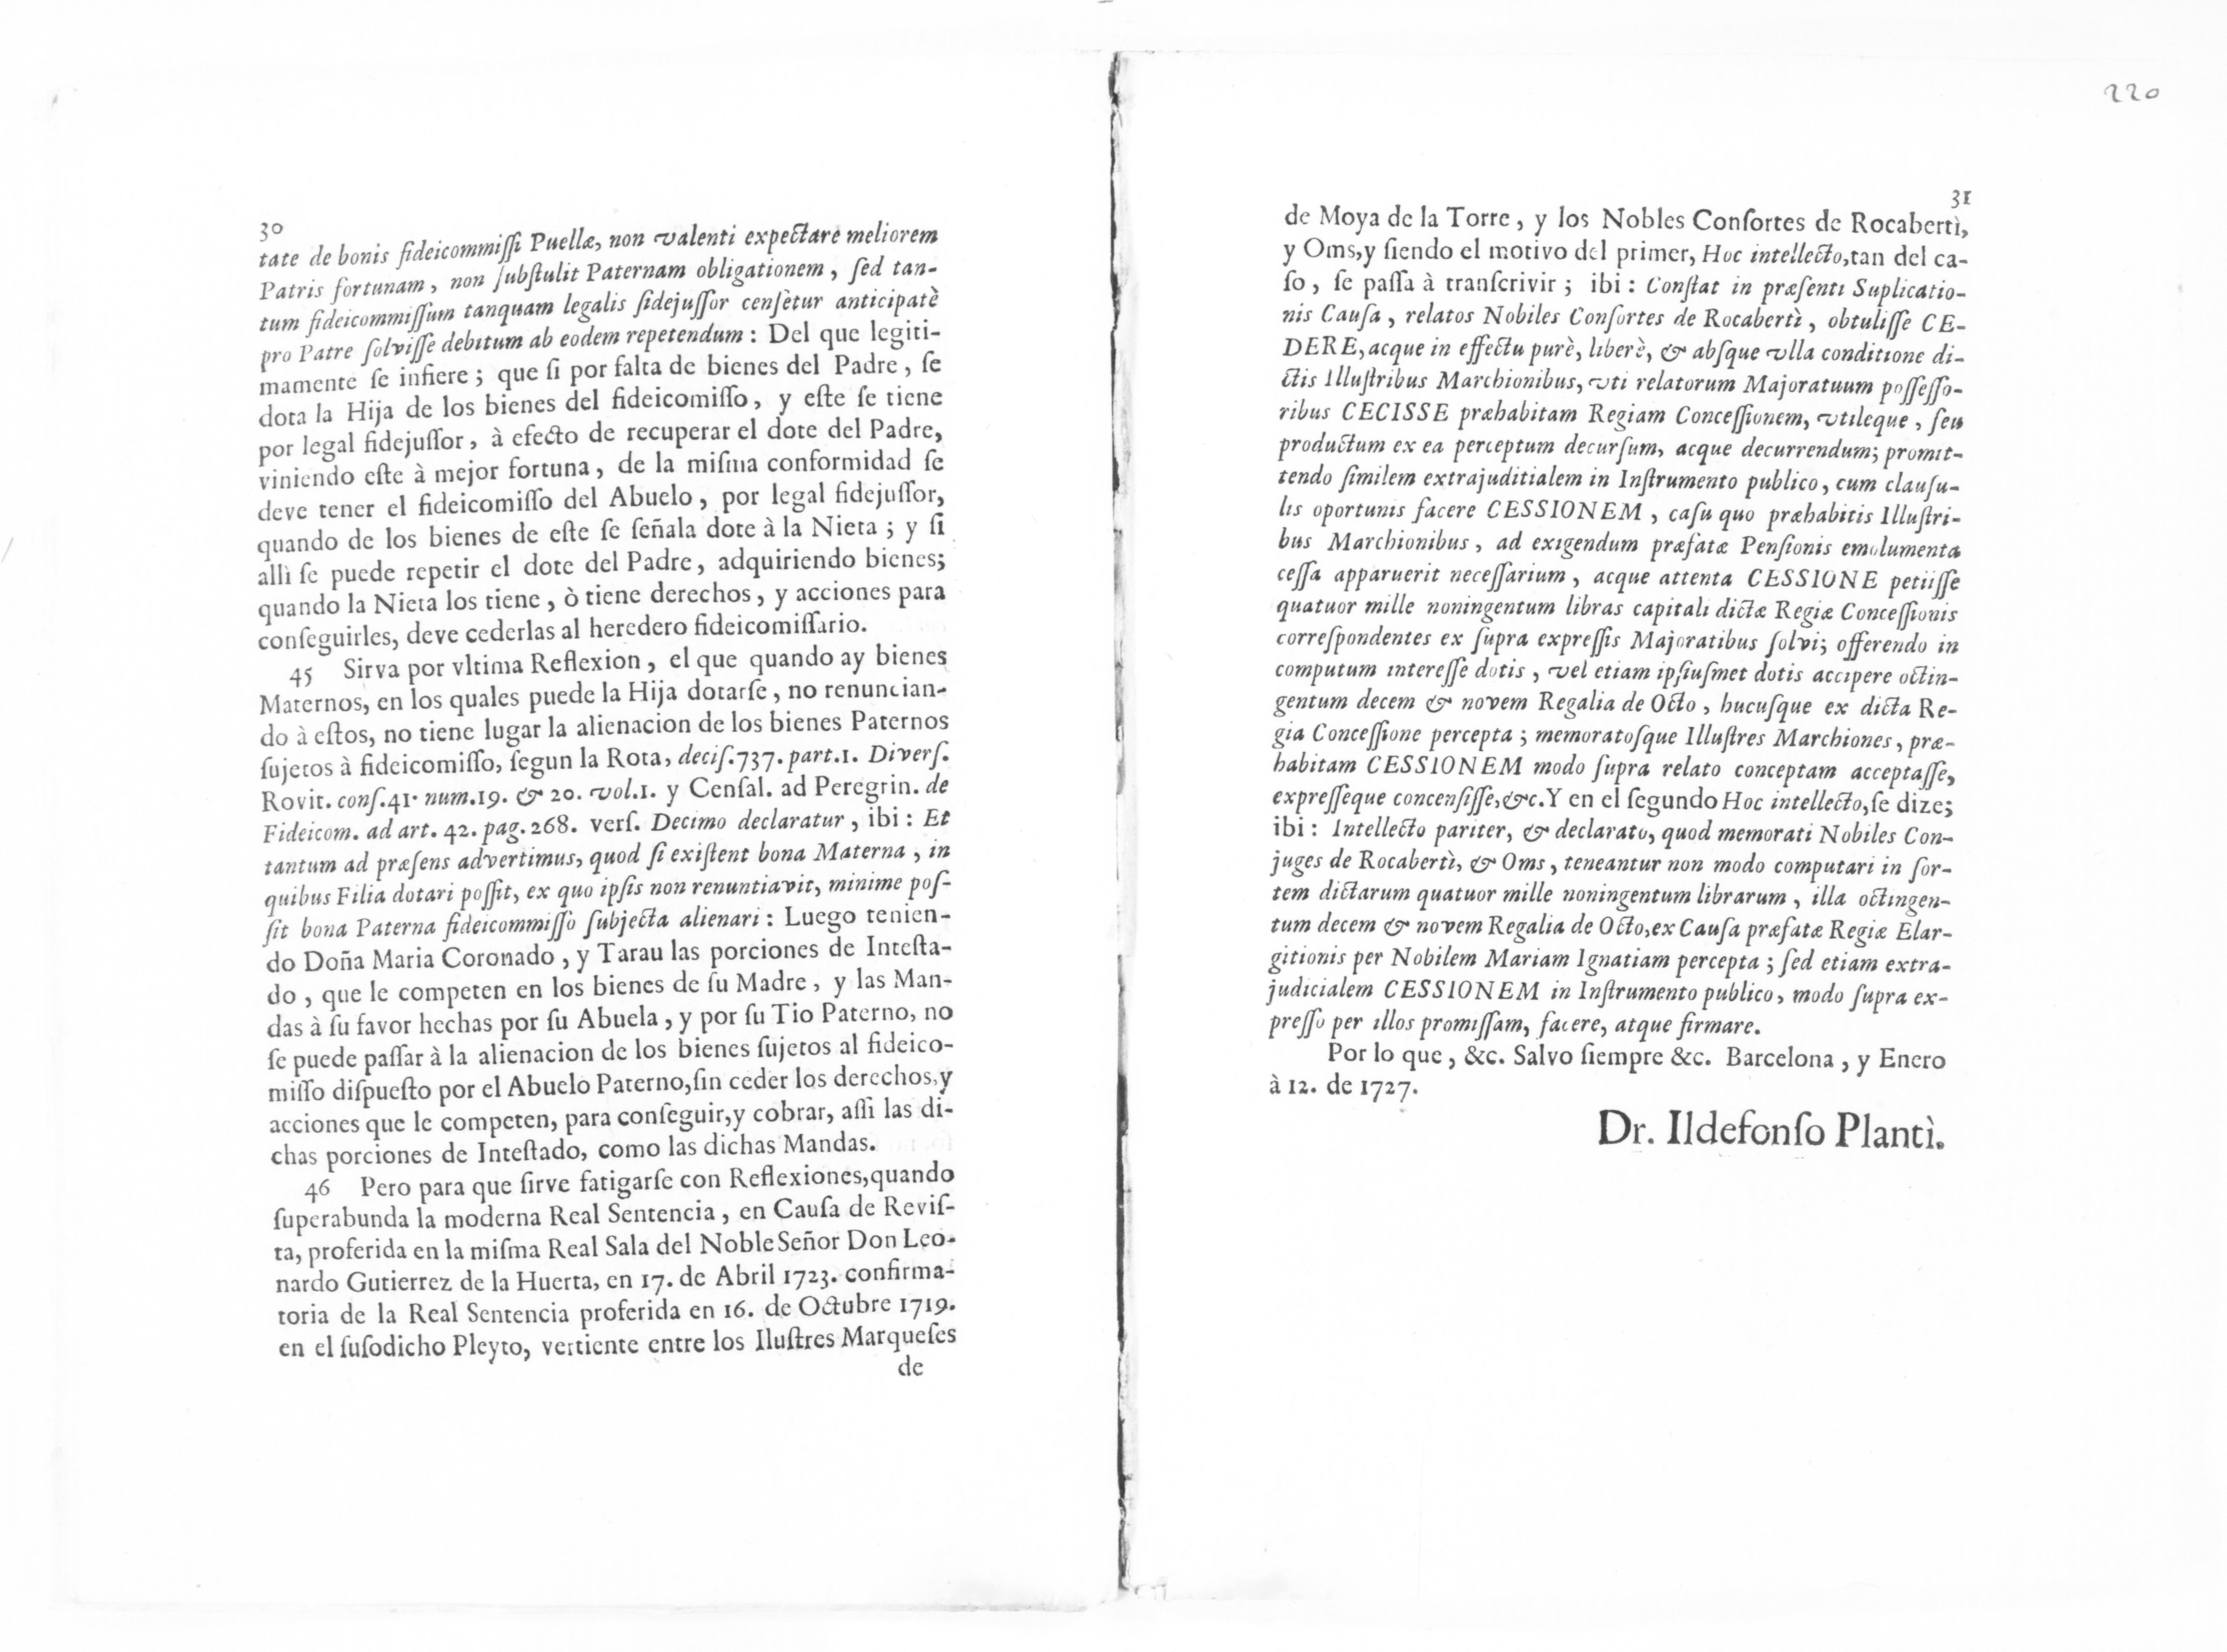 30
tate de bonis fideicommiſſi Puellæ, non valenti expectare meliorem
Patris fortunam, non ſubſtulit Paternam obligationem, ſed tan-
tum fideicommiſſum tanquam legalis fidejuſſor cenſetur anticipatè
pro Patre ſolviſſe debitum ab eodem repetendum: Del que legiti-
mamente ſe infiere; que ſi por falta de bienes del Padre, ſe
dota la Hija de los bienes del fideicomiſſo, y eſte ſe tiene
por legal fidejuſſor, à efecto de recuperar el dote del Padre,
viniendo eſte à mejor fortuna, de la miſma conformidad ſe
deve tener el fideicomiſſo del Abuelo, por legal fidejuſſor,
quando de los bienes de eſte ſe ſeñala dote à la Nieta; y ſi
alli ſe puede repetir el dote del Padre, adquiriendo bienes;
quando la Nieta los tiene, ò tiene derechos, y acciones para
conſeguirles, deve cederlas al heredero fideicomiſſario.
45 Sirva por vltima Reflexion, el que quando ay bienes
Maternos, en los quales puede la Hija dotarſe, no renuncian-
do à eſtos, no tiene lugar la alienacion de los bienes Paternos
ſujetos à fideicomiſſo, ſegun la Rota, deciſ.737.part.1. Diverſ.
Rovit. conſ.41. num.19. & 20. vol.1. y Cenſal. ad Peregrin. de
Fideicom. ad art. 42. pag.268. verſ. Decimo declaratur, ibi: Et
tantum ad præſens advertimus, quod ſi exiſtent bona Materna, in
quibus Filia dotari poſſit, ex quo ipſis non renuntiavit, minime poſ-
ſit bona Paterna fideicommiſſo ſubjecta alienari: Luego tenien-
do Doña Maria Coronado, y Tarau las porciones de Inteſta-
do, que le competen en los bienes de ſu Madre, y las Man-
das à ſu favor hechas por ſu Abuela, y por ſu Tio Paterno, no
ſe puede paſſar à la alienacion de los bienes ſujetos al fideico-
miſſo diſpueſto por el Abuelo Paterno, ſin ceder los derechos, y
acciones que le competen, para conſeguir, y cobrar, aſſi las di-
chas porciones de Inteſtado, como las dichas Mandas.
46 Pero para que ſirve fatigarſe con Reflexiones, quando
ſuperabunda la moderna Real Sentencia, en Cauſa de Reviſ-
ta, proferida en la miſma Real Sala del Noble Señor Don Leo-
nardo Gutierrez de la Huerta, en 17. de Abril 1723. confirma-
toria de la Real Sentencia proferida en 16. de Octubre 1719.
en el ſuſodicho Pleyto, vertiente entre los Iluſtres Marqueſes
de
220
31
de Moya de la Torre, y los Nobles Conſortes de Rocabertì,
y Oms, y ſiendo el motivo del primer, Hoc intellecto, tan del ca-
ſo, ſe paſſa à tranſcrivir; ibi: Conſtat in præſenti Suplicatio-
nis Cauſa, relatos Nobiles Conſortes de Rocabertì, obtuliſſe CE-
DERE, acque in effectu purè, liberè, & abſque vlla conditione di-
ctis Illuſtribus Marchionibus, vti relatorum Majoratuum poſſeſſo-
ribus CECISSE præhabitam Regiam Conceſſionem, vtileque, ſeu
productum ex ea perceptum decurſum, acque decurrendum; promit-
tendo ſimilem extrajuditialem in Inſtrumento publico, cum clauſu-
lis oportunis facere CESSIONEM, caſu quo præhabitis Illuſtri-
bus Marchionibus, ad exigendum præfatæ Penſionis emolumenta
ceſſa apparuerit neceſſarium, acque attenta CESSIONE petiiſſe
quatuor mille noningentum libras capitali dictæ Regiæ Conceſſionis
correſpondentes ex ſupra expreſſis Majoratibus ſolvi; offerendo in
computum intereſſe dotis, vel etiam ipſiuſmet dotis accipere octin-
gentum decem & novem Regalia de Octo, hucuſque ex dicta Re-
gia Conceſſione percepta; memoratoſque Illuſtres Marchiones, præ-
habitam CESSIONEM modo ſupra relato conceptam acceptaſſe,
expreſſeque concenſiſſe, &c. Y en el ſegundo Hoc intellecto, ſe dize;
ibi: Intellecto pariter, & declarato, quod memorati Nobiles Con-
juges de Rocabertì, & Oms, teneantur non modo computari in ſor-
tem dictarum quatuor mille noningentum librarum, illa octingen-
tum decem & novem Regalia de Octo, ex Cauſa præfatæ Regiæ Elar-
gitionis per Nobilem Mariam Ignatiam percepta; ſed etiam extra-
judicialem CESSIONEM in Inſtrumento publico, modo ſupra ex-
preſſo per illos promiſſam, facere, atque firmare.
Por lo que, &c. Salvo ſiempre &c. Barcelona, y Enero
à 12. de 1727.
Dr. Ildefonſo Plantì.